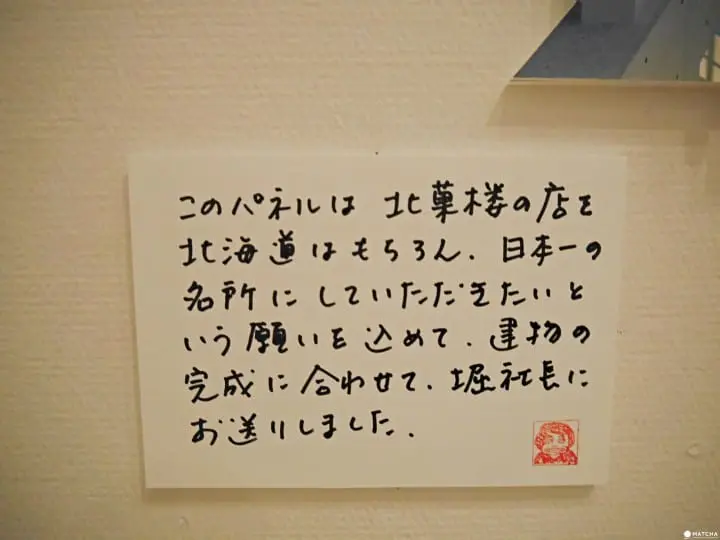 このパネルは 北菓楼の店を
北海道はもちろん、日本一の
名所にしていただきたいと
いう願いを込めて、建物の
完成に合わせて、堀社長に
お送りしました。
MATCHA